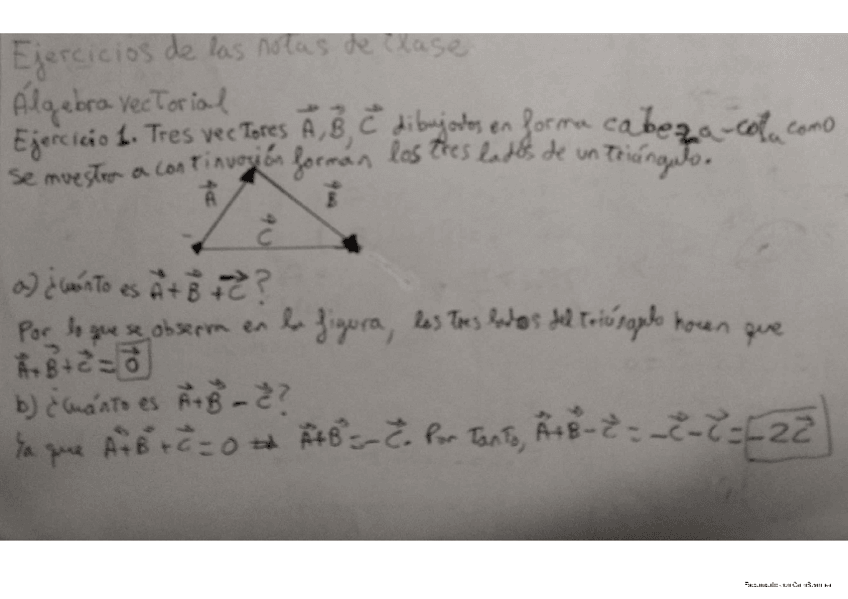 Ejercicios de las notas de clase
Álgebra vectorial
Ejercicio 1. Tres vectores A⃗, B⃗, C⃗ dibujados en forma cabeza-cola como
se muestra a continuación forman los tres lados de un triángulo.
A⃗ B⃗
C⃗
a) ¿cuánto es A⃗+B⃗+C⃗?
Por lo que se observa en la figura, los tres lados del triángulo hacen que
A⃗+B⃗+C⃗=0⃗
b) ¿cuánto es A⃗+B⃗-C⃗?
Ya que A⃗+B⃗+C⃗=0 ⇒ A⃗+B⃗=-C⃗. Por tanto, A⃗+B⃗-C⃗=-C⃗-C⃗=-2C⃗